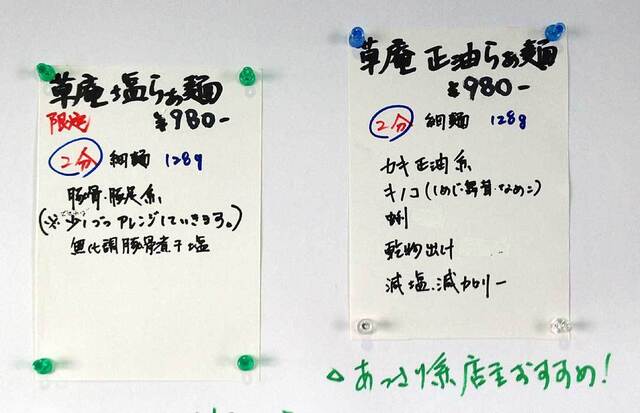 草庵 塩らぁ麺
限定 ¥980-
2分 細麺 128g
豚骨・豚足系
(※少しづつアレンジしていきます。)
無化調豚骨煮干塩
草庵 正油らぁ麺
¥980-
2分 細麺 128g
カキ正油系
キノコ(しめじ・舞茸・なめこ)
蜊
乾物出汁
減塩・減カロリー
△あっさり系 店主おすすめ!